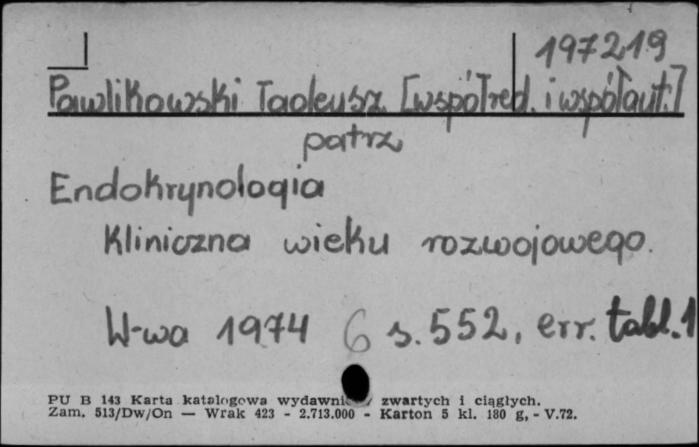 197219
Pawlikowski Tadeusz [współred. i współaut.]
patrz
Endokrynologia
Kliniczna wieku rozwojowego.
W-wa 1974 6 s. 552, err. tabl. 1
PU B 143 Karta katalogowa wydawnictw zwartych i ciągłych.
Zam. 513/Dw/On — Wrak 423 - 2.713.000 - Karton 5 kl. 180 g, - V.72.